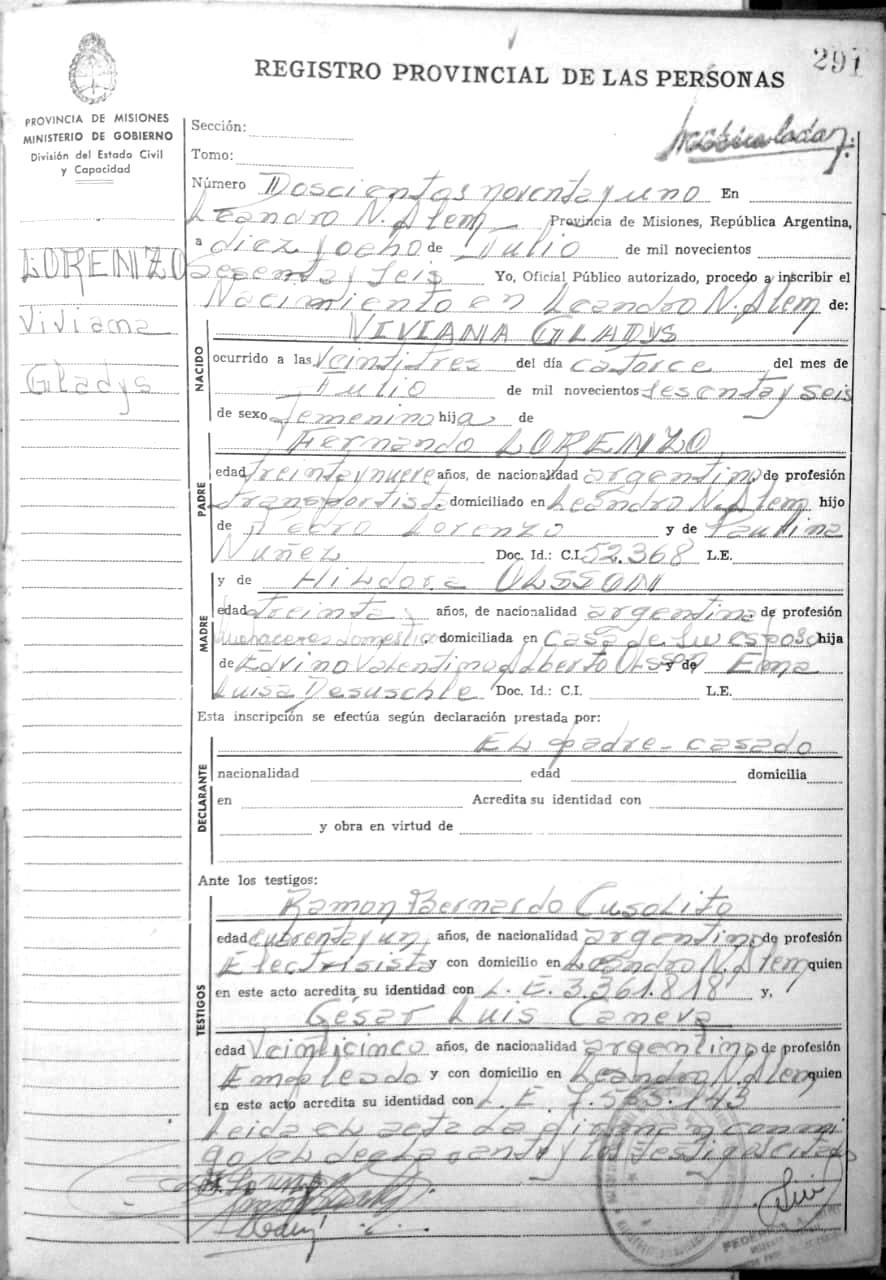 291
REGISTRO PROVINCIAL DE LAS PERSONAS
PROVINCIA DE MISIONES
MINISTERIO DE GOBIERNO
División del Estado Civil
y Capacidad
LORENZO
Viviana
Gladys
Sección:
Tomo:
Número Doscientos noventa y uno En
Leandro N. Alem Provincia de Misiones, República Argentina,
a diez y ocho de Julio de mil novecientos
sesenta y seis Yo, Oficial Público autorizado, procedo a inscribir el
Nacimiento en Leandro N. Alem de:
VIVIANA GLADYS
NACIDO
ocurrido a las veintitres del día catorce del mes de
Julio de mil novecientos sesenta y seis
de sexo femenino hija de
Fernando LORENZO
PADRE
edad treinta y nueve años, de nacionalidad argentino de profesión
transportist. domiciliado en Leandro N. Alem hijo
de Pedro Lorenzo y de Paulina
Nuñez Doc. Id.: C.I. 52.368 L.E.
y de Hildora OLSSON
MADRE
edad treinta años, de nacionalidad argentina de profesión
domiciliada en casa de su esposo hija
de Edvino Valentino Alberto y de Ema
Luisa Doc. Id.: C.I. L.E.
Esta inscripción se efectúa según declaración prestada por:
El padre - casado
DECLARANTE
nacionalidad edad domicilia
en Acredita su identidad con
y obra en virtud de
Ante los testigos:
Ramon Bernardo Cusolito
TESTIGOS
edad cuarenta y un años, de nacionalidad argentino de profesión
Electrisista y con domicilio en Leandro N. Alem quien
en este acto acredita su identidad con L. E. 3.361.818 y,
César Luis Caneva
edad Veinticinco años, de nacionalidad argentino de profesión
Empleado y con domicilio en Leandro N. Alem quien
en este acto acredita su identidad con L. E. 7.553.143
Leida el acta la firman conmi
go el declarante y los testigos citados